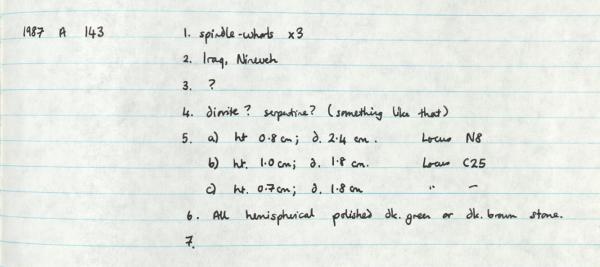 1987 A 143 1. spindle-whorls x3
2. Iraq, Nineveh
3. ?
4. diorite? serpentine? (something like that)
5. a) ht 0.8 cm; d. 2.4 cm. Locus N8
b) ht. 1.0 cm; d. 1.8 cm. Locus C25
c) ht. 0.7 cm; d. 1.8 cm " –
6. All hemispherical polished dk. green or dk. brown stone.
7.